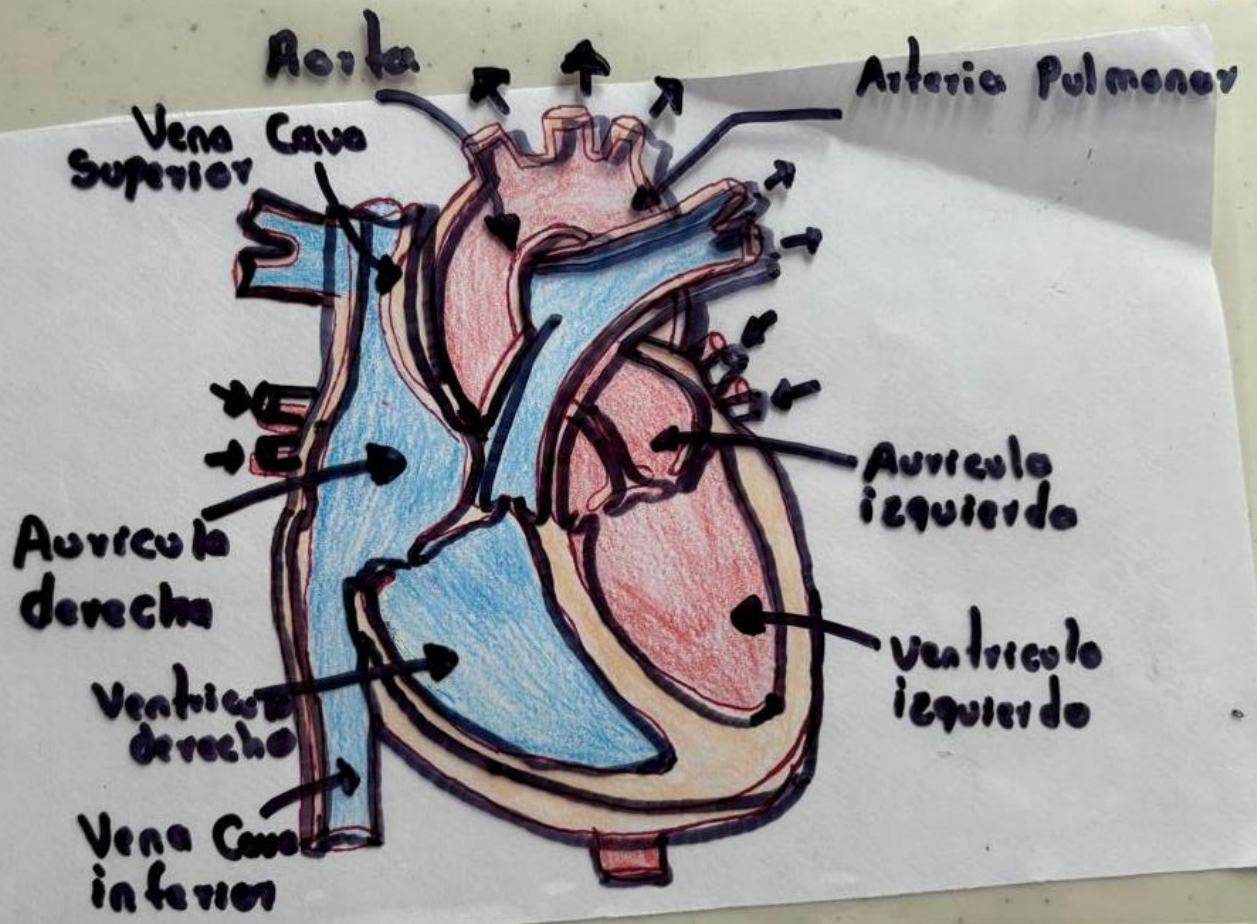 Aorta
Arteria Pulmonar
Vena Cava
Superior
Aurícula
izquierda
Aurícula
derecha
Ventrículo
izquierdo
Ventriculo
derecho
Vena Cava
inferior